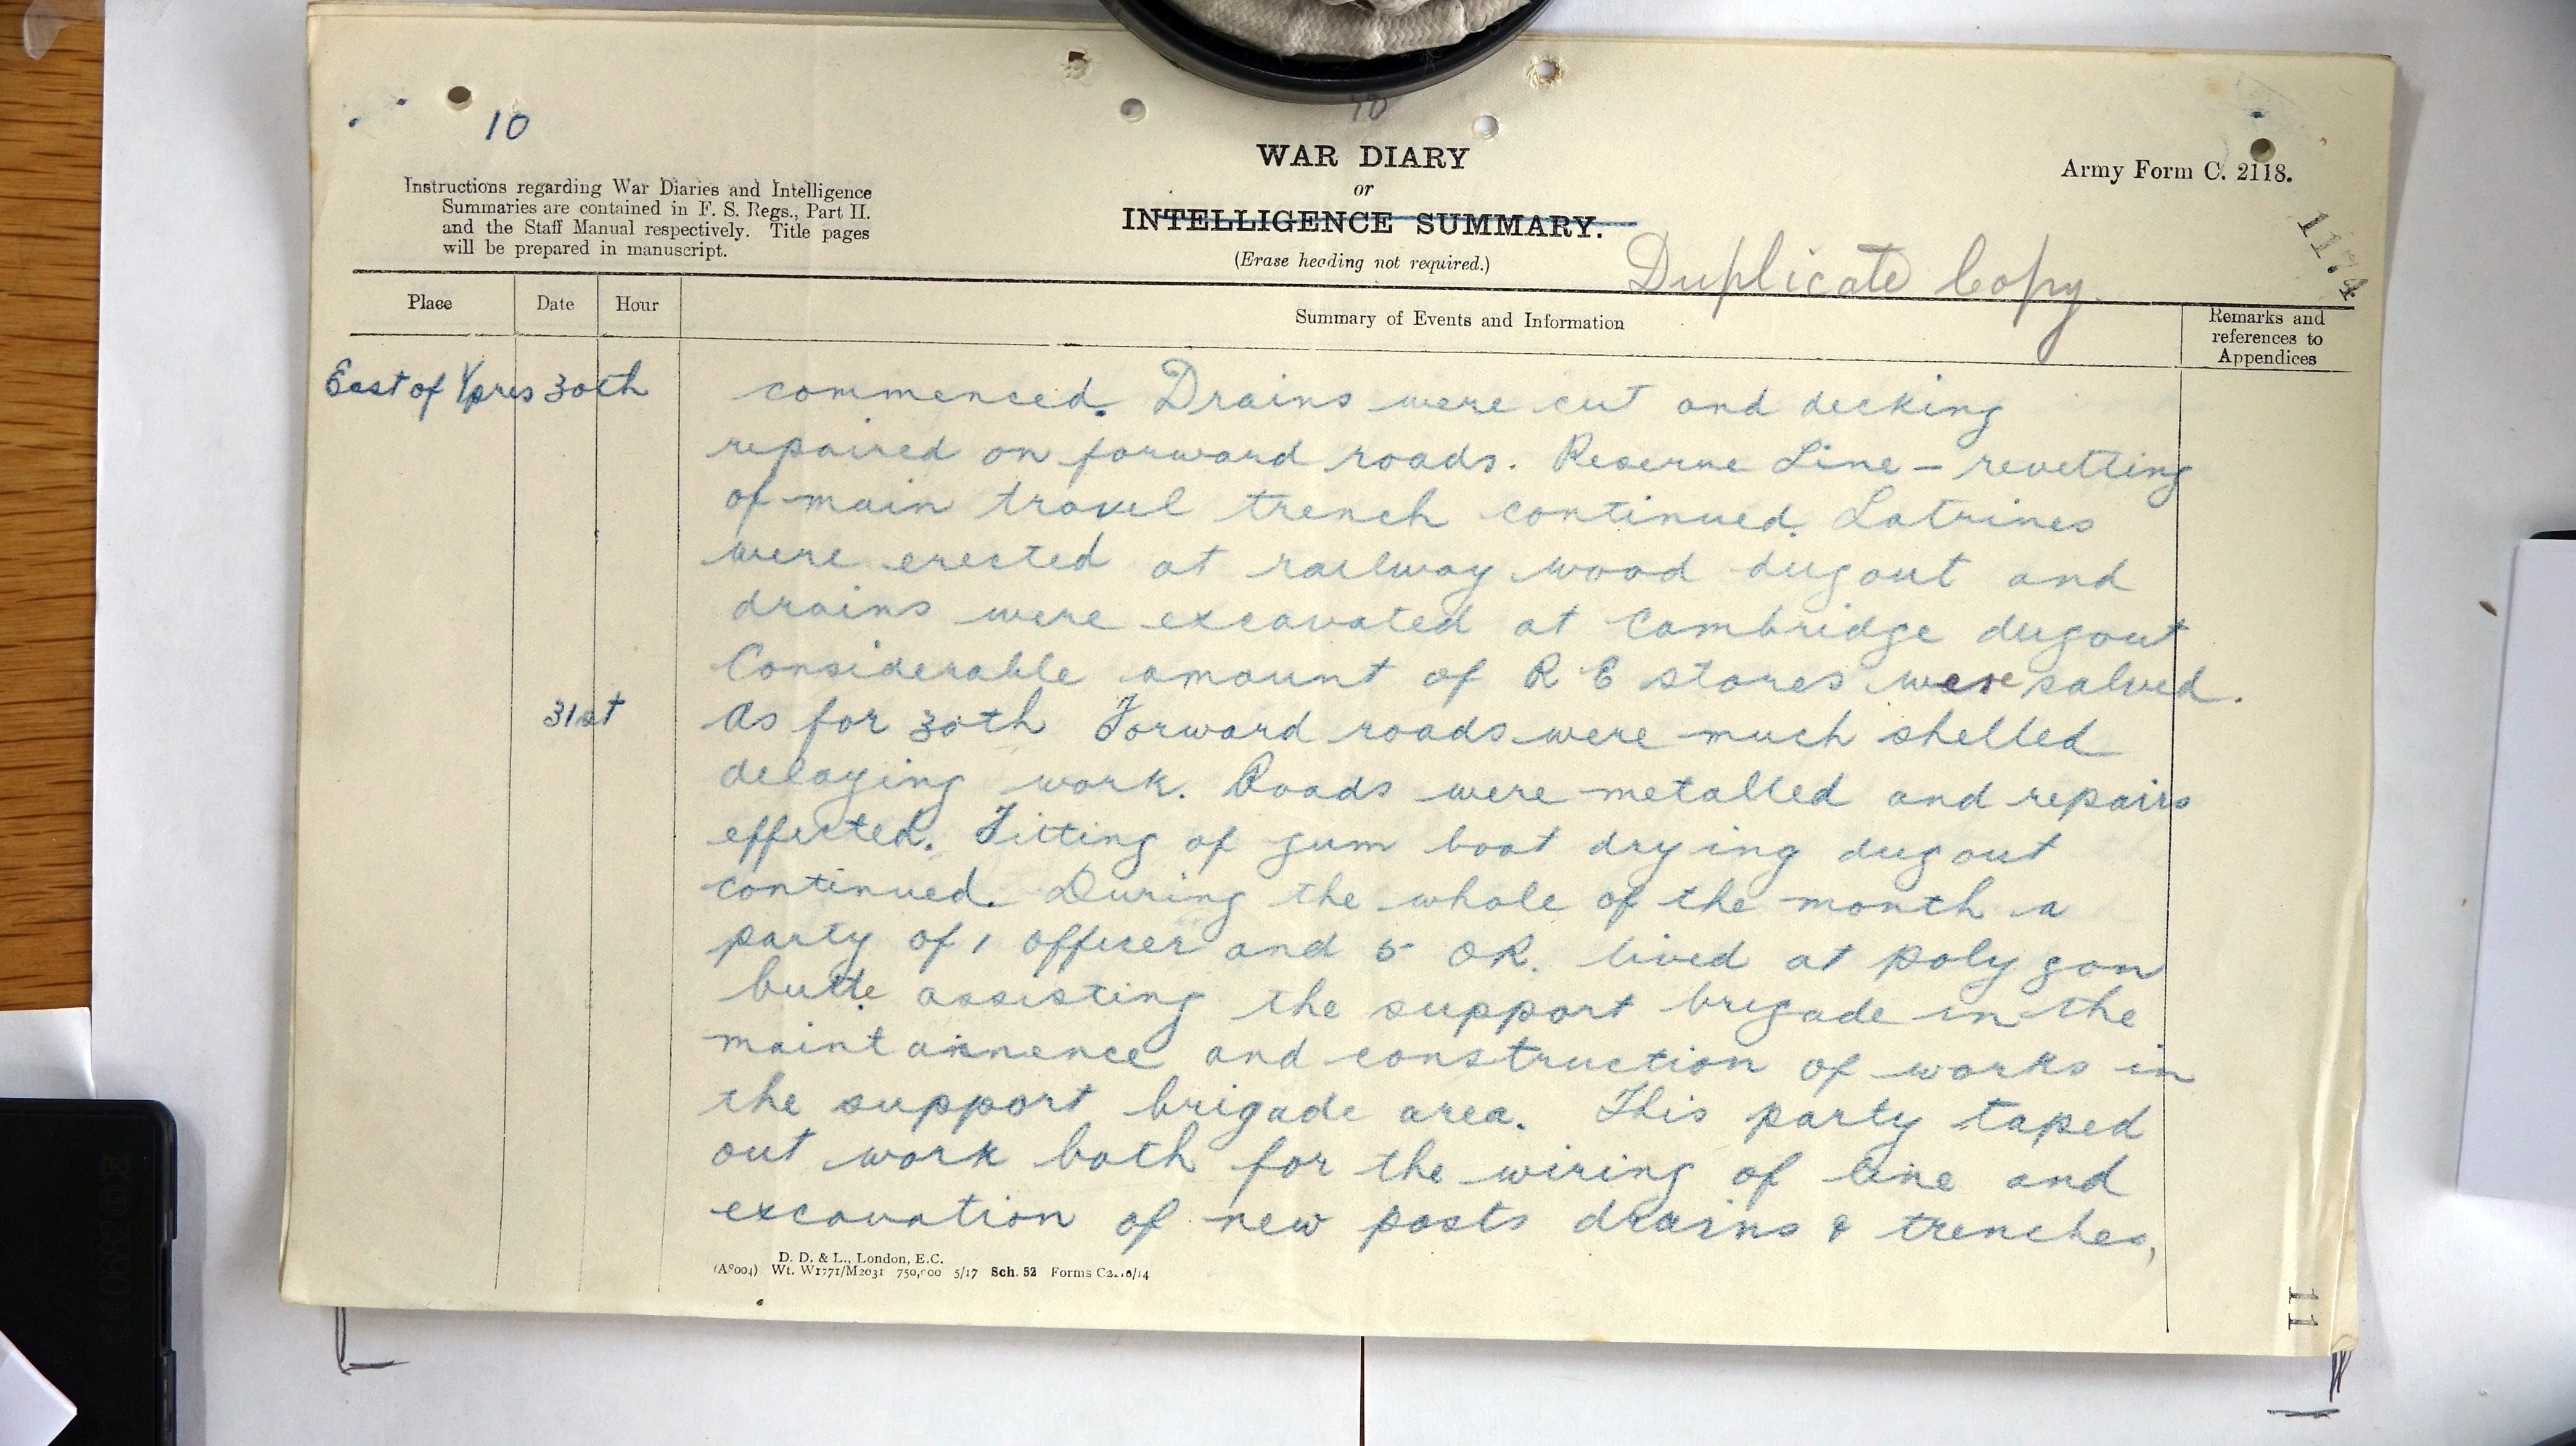 10
10
WAR DIARY
or
INTELLIGENCE SUMMARY.
(Erase heading not required.)
Army Form C. 2118.
Instructions regarding War Diaries and Intelligence
Summaries are contained in F. S. Regs., Part II.
and the Staff Manual respectively. Title pages
will be prepared in manuscript.
Duplicate Copy
1174
Place Date Hour Summary of Events and Information Remarks and
references to
Appendices
East of Ypres 30th commenced. Drains were cut and decking
repaired on forward roads. Reserve Line – revetting
of main travel trench continued. Latrines
were erected at railway wood dugout and
drains were excavated at Cambridge dugout
Considerable amount of R E stores were salved.
31st As for 30th Forward roads were much shelled
delaying work. Roads were metalled and repairs
effected. Fitting of gum boot drying dugout
continued. During the whole of the month a
party of 1 officer and 5 OR. lived at polygon
butte assisting the support brigade in the
maintainnence and construction of works in
the support brigade area. This party taped
out work both for the wiring of line and
excavation of new posts drains & trenches,
D. D. & L., London, E.C.
(A8004) Wt. W1771/M2031 750,000 5/17 Sch. 52 Forms C2118/14
11